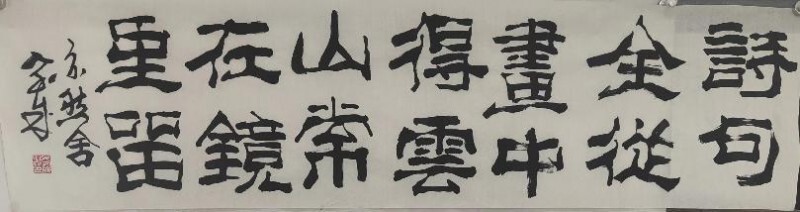 詩句
全從
畫中
得雲
山常
在鏡
里留
亦然舍